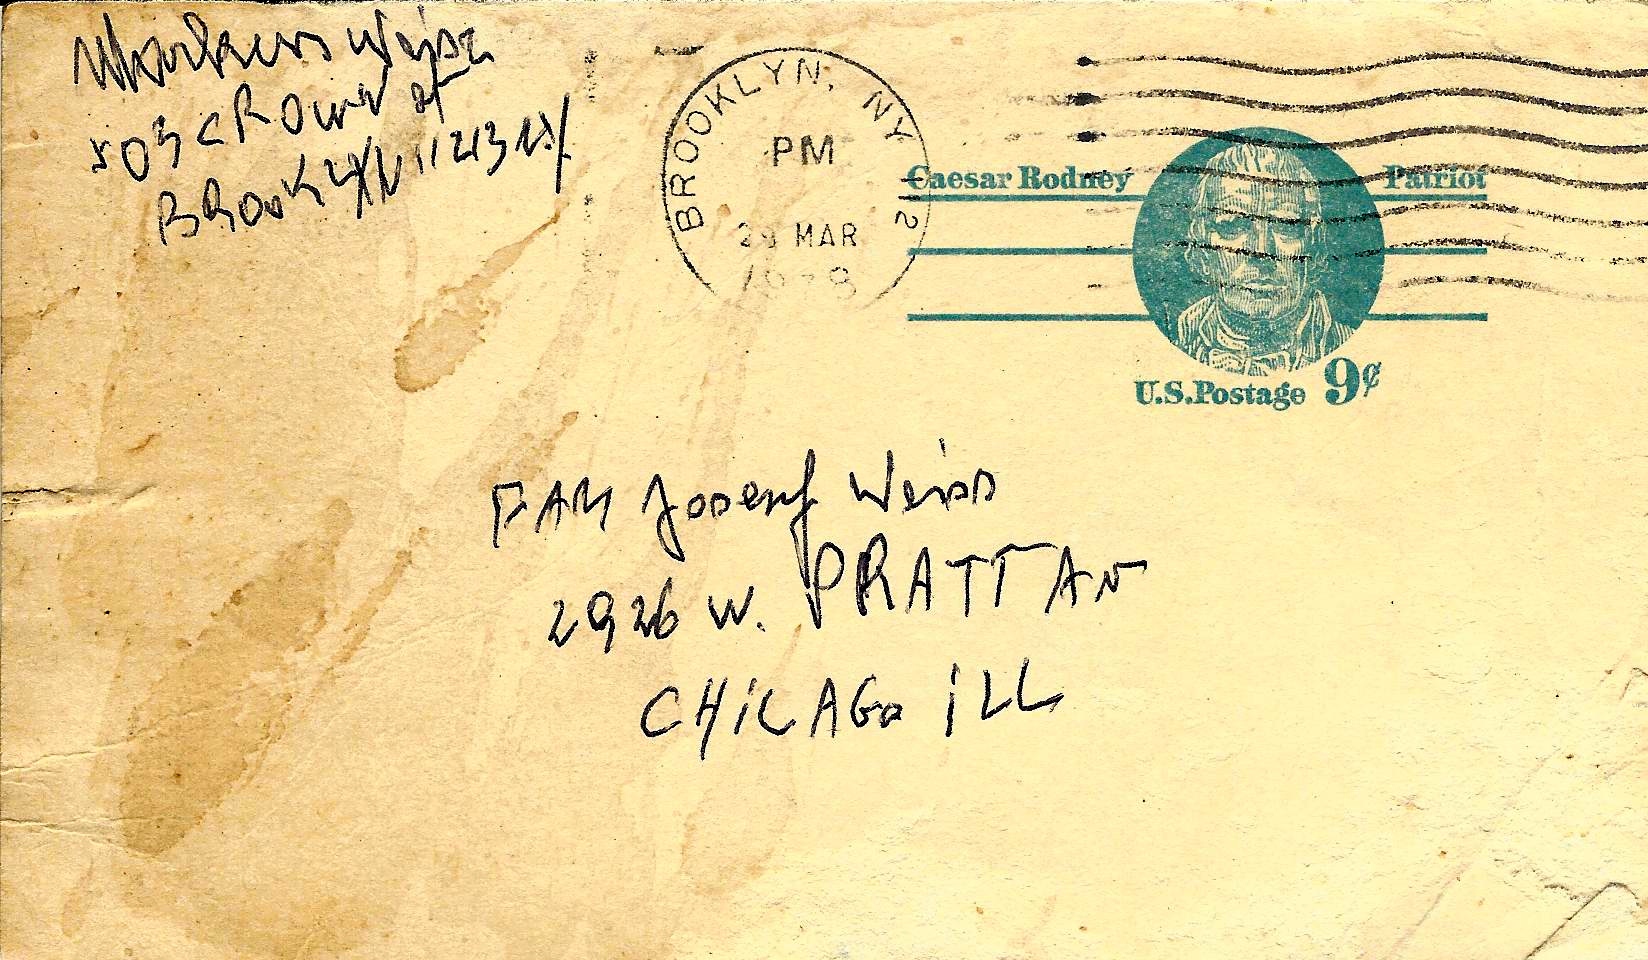 Weisz
503 CROWN st
BROOKLYN 11213 NY
BROOKLYN, NY 112
PM
MAR
Caesar Rodney Patriot
U.S. Postage 9¢
FAM Joseph Weiss
2926 W. PRATT AV
CHICAGO iLL